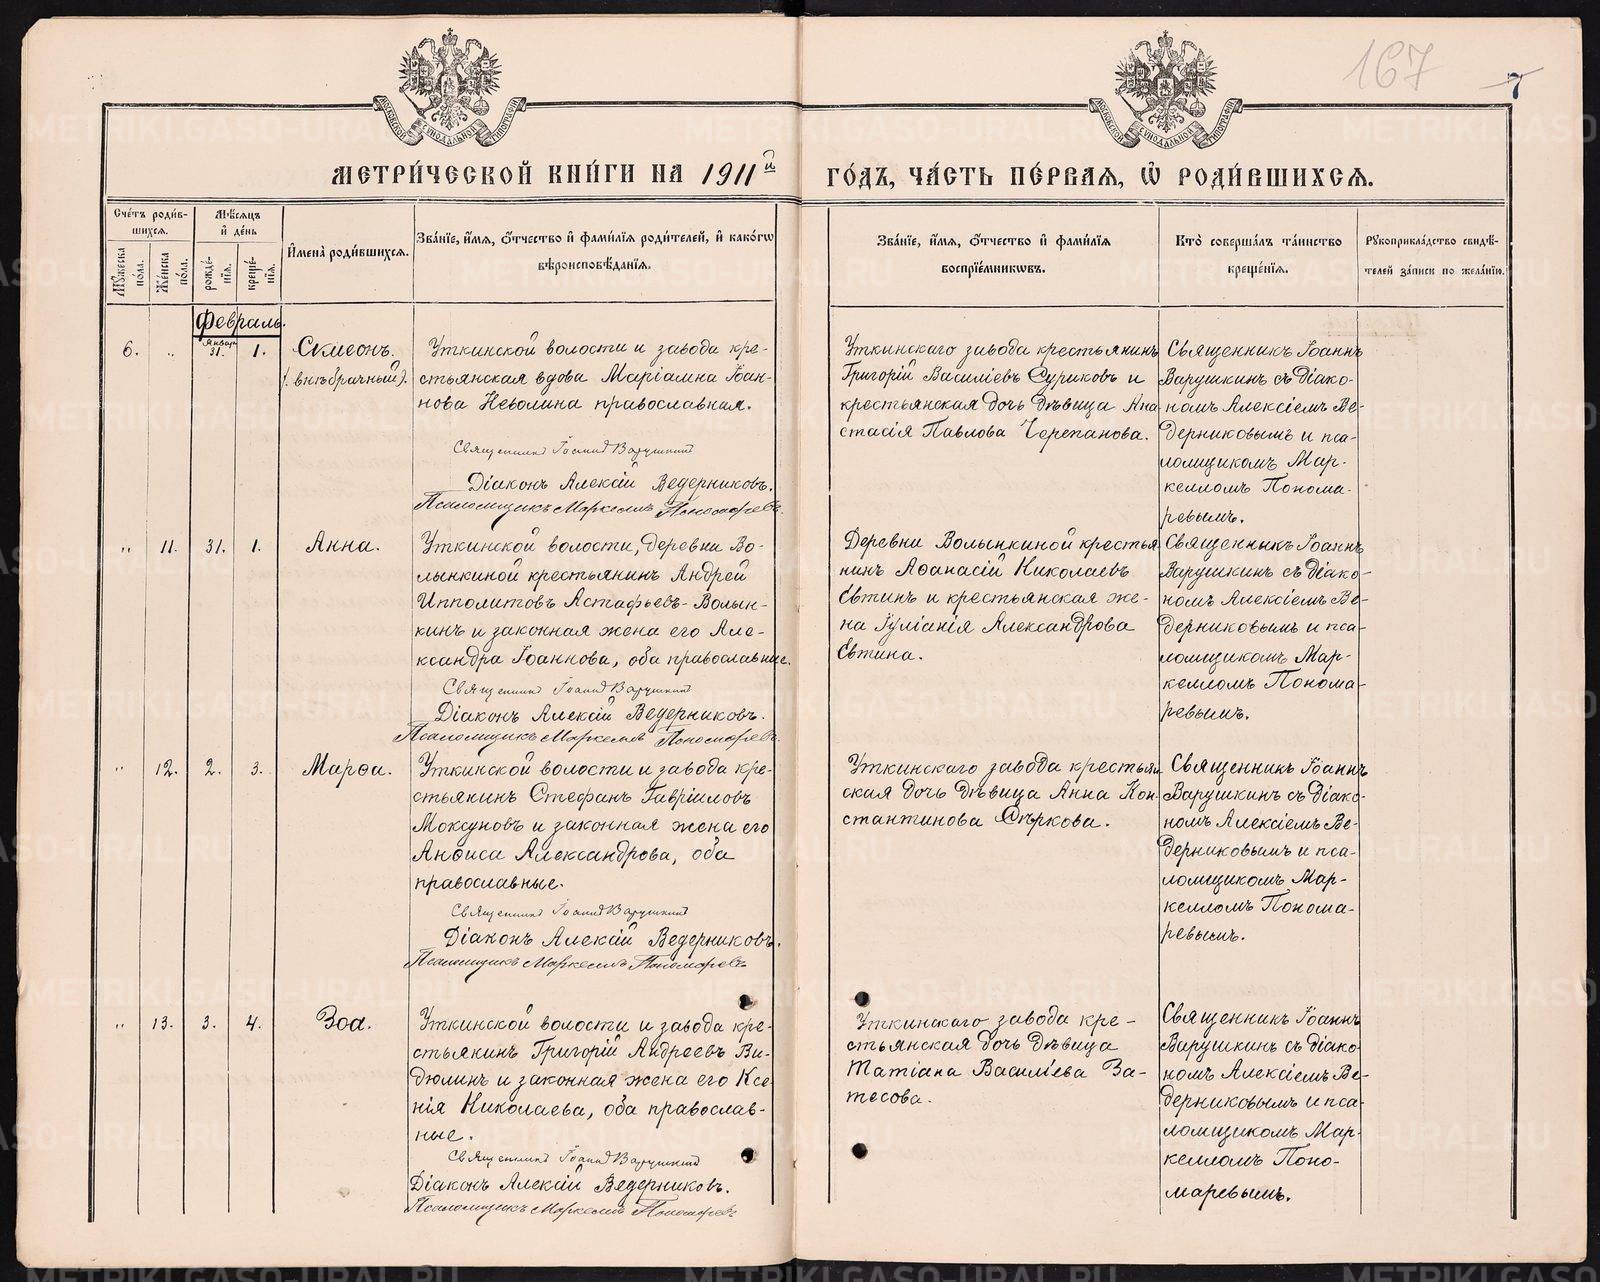 167
7
МОСКОВСКОЙ СИНОДАЛЬНОЙ ТИПОГРАФІИ
МОСКОВСКОЙ СИНОДАЛЬНОЙ ТИПОГРАФІИ
МЕТРИ́ЧЕСКОЙ КНИ́ГИ НА 1911й ГО́ДЪ, ЧА́СТЬ ПЕ́РВАЯ, Ѡ РОДИ́ВШИХСЯ.
Сче́тъ роди́в-
шихся.
Му́жеска
по́ла.
Же́нска
по́ла.
Мѣ́сяцъ
и де́нь
рожде́-
нїя.
креще́-
нїя.
Имена̀ роди́вшихся.
Зва́нїе, и́мя, о́тчество и фами́лїя роди́телей, и како́гѡ
вѣроисповѣ́данїя.
Зва́нїе, и́мя, о́тчество и фами́лїя
воспрїе́мникѡвъ.
Кто̀ соверша́лъ та́инство
креще́нїя.
Рукоприкла́дство свидѣ́-
телей за́писи по жела́нїю.
Февраль.
6. „ Январ. 31. 1. Сѵмеонъ.
(внѣбрачный).
Уткинской волости и завода кре-
стьянская вдова Маріамна Іоан-
нова Неволина православная.
Священникъ Іоаннъ Варушкинъ
Діаконъ Алексій Ведерниковъ.
Псаломщикъ Маркеллъ Пономаревъ.
Уткинскаго завода крестьянинъ
Григорій Василіевъ Суриковъ и
крестьянская дочь дѣвица Ана-
стасія Павлова Черепанова.
Священникъ Іоаннъ
Варушкинъ съ діако-
номъ Алексіемъ Ве-
дерниковымъ и пса-
ломщикомъ Мар-
келломъ Понома-
ревымъ.
„ 11. 31. 1. Анна.
Уткинской волости, деревни Во-
лынкиной крестьянинъ Андрей
Ипполитовъ Астафьевъ-Волын-
кинъ и законная жена его Але-
ксандра Іоаннова, оба православные.
Священникъ Іоаннъ Варушкинъ
Діаконъ Алексій Ведерниковъ.
Псаломщикъ Маркеллъ Пономаревъ.
Деревни Волынкиной крестья-
нинъ Аѳанасій Николаевъ
Евтинъ и крестьянская же-
на Іуліанія Александрова
Евтина.
Священникъ Іоаннъ
Варушкинъ съ діако-
номъ Алексіемъ Ве-
дерниковымъ и пса-
ломщикомъ Мар-
келломъ Понома-
ревымъ.
„ 12. 2. 3. Марѳа.
Уткинской волости и завода кре-
стьянинъ Стефанъ Гавріиловъ
Моксуновъ и законная жена его
Анѳиса Александрова, оба
православные.
Священникъ Іоаннъ Варушкинъ
Діаконъ Алексій Ведерниковъ.
Псаломщикъ Маркеллъ Пономаревъ
Уткинскаго завода крестьян-
ская дочь дѣвица Анна Кон-
стантинова Сѣркова.
Священникъ Іоаннъ
Варушкинъ съ діако-
номъ Алексіемъ Ве-
дерниковымъ и пса-
ломщикомъ Мар-
келломъ Понома-
ревымъ.
„ 13. 3. 4. Зоа.
Уткинской волости и завода кре-
стьянинъ Григорій Андреевъ Ви-
дюлинъ и законная жена его Ксе-
нія Николаева, оба православ-
ные.
Священникъ Іоаннъ Варушкинъ
Діаконъ Алексій Ведерниковъ.
Псаломщикъ Маркеллъ Пономаревъ
Уткинскаго завода кре-
стьянская дочь дѣвица
Татіана Василіева За-
тесова.
Священникъ Іоаннъ
Варушкинъ съ діако-
номъ Алексіемъ Ве-
дерниковымъ и пса-
ломщикомъ Мар-
келломъ Поно-
маревымъ.
METRIKI.GASO-URAL.RU